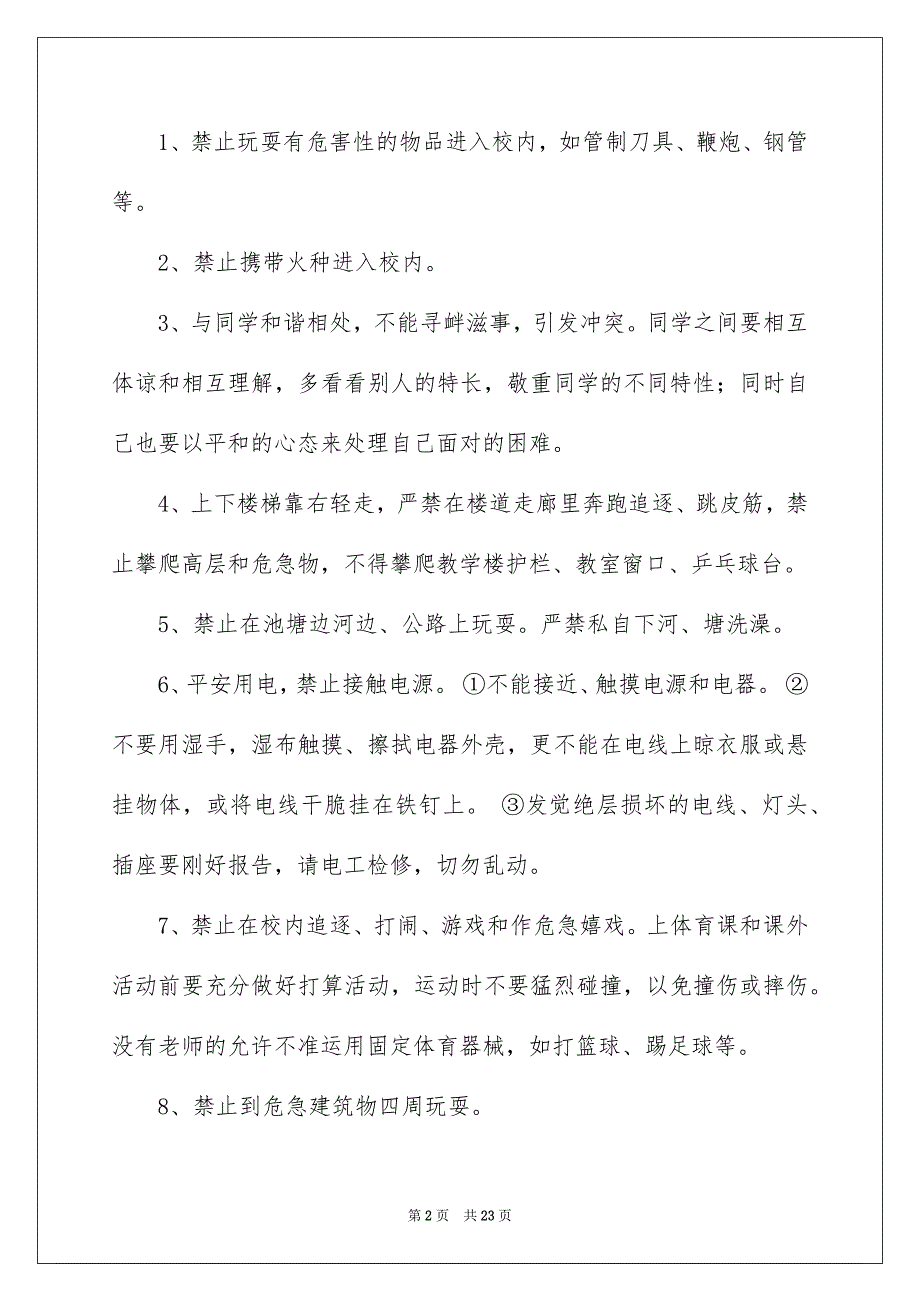 1、禁止玩耍有危害性的物品进入校内，如管制刀具、鞭炮、钢管
等。
2、禁止携带火种进入校内。
3、与同学和谐相处，不能寻衅滋事，引发冲突。同学之间要相互
体谅和相互理解，多看看别人的特长，敬重同学的不同特性；同时自
己也要以平和的心态来处理自己面对的困难。
4、上下楼梯靠右轻走，严禁在楼道走廊里奔跑追逐、跳皮筋，禁
止攀爬高层和危急物，不得攀爬教学楼护栏、教室窗口、乒乓球台。
5、禁止在池塘边河边、公路上玩耍。严禁私自下河、塘洗澡。
6、平安用电，禁止接触电源。 ①不能接近、触摸电源和电器。 ②
不要用湿手，湿布触摸、擦拭电器外壳，更不能在电线上晾衣服或悬
挂物体，或将电线干脆挂在铁钉上。 ③发觉绝层损坏的电线、灯头、
插座要刚好报告，请电工检修，切勿乱动。
7、禁止在校内追逐、打闹、游戏和作危急嬉戏。上体育课和课外
活动前要充分做好打算活动，运动时不要猛烈碰撞，以免撞伤或摔伤。
没有老师的允许不准运用固定体育器械，如打篮球、踢足球等。
8、禁止到危急建筑物四周玩耍。
第 2 页 共 23 页